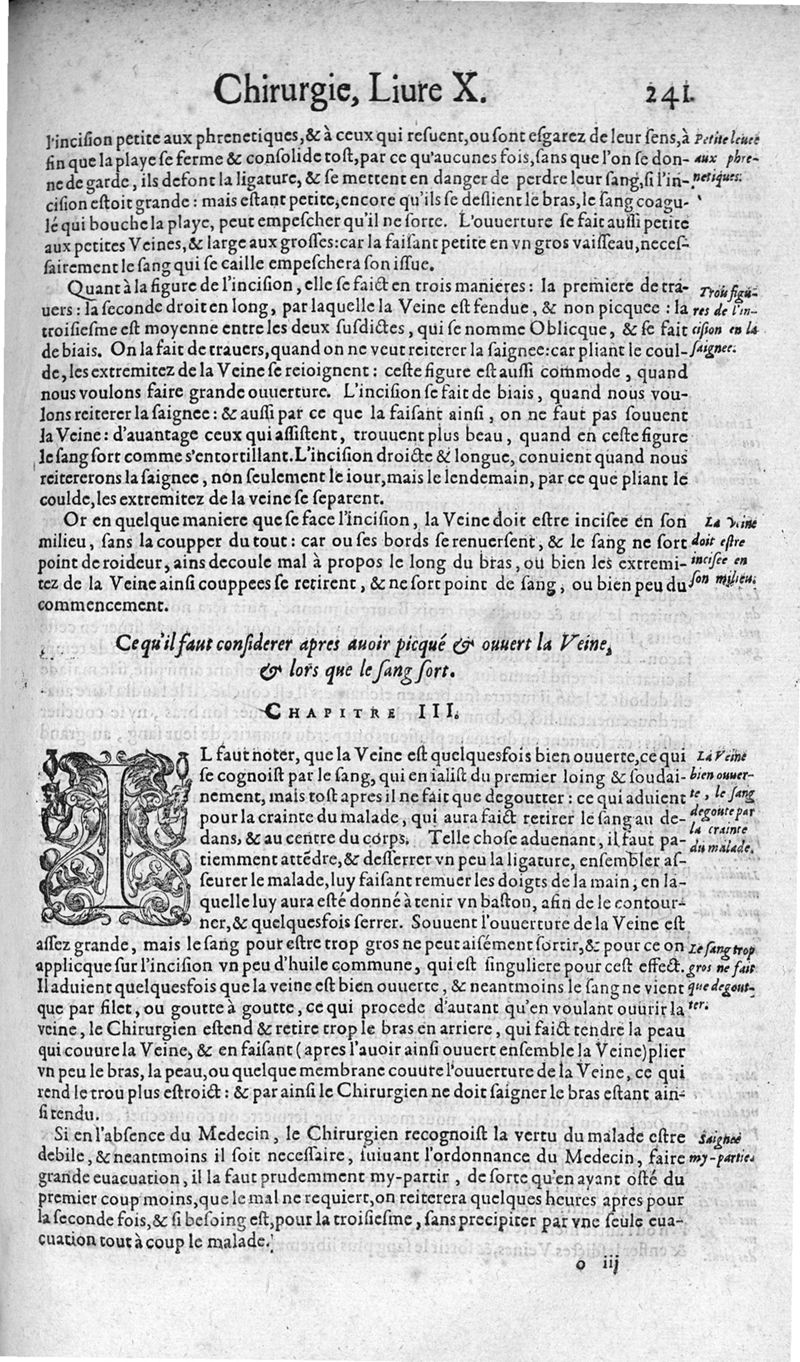 Chirurgie, Liure X. 241.
l'incision petite aux phrenetiques,& à ceux qui resuent,ou sont esgarez de leur sens,à
fin que la playe se ferme & consolide tost,par ce qu'aucunes fois,sans que l'on se don-
ne de garde, ils defont la ligature, & se mettent en danger de perdre leur sang,si l'in-
cision estoit grande : mais estant petite,encore qu'ils se deslient le bras, le sang coagu-
lé qui bouche la playe, peut empescher qu'il ne sorte. L'ouuerture se fait aussi petite
aux petites Veines,& large aux grosses:car la faisant petite en vn gros vaisseau,neces-
sairement le sang qui se caille empeschera son issue.
Petite leuee
aux phre-
netiques.
Quant à la figure de l'incision, elle se faict en trois manieres : la premiere de tra-
uers : la seconde droit en long, par laquelle la Veine est fendue, & non picquee : la
troisiesme est moyenne entre les deux susdictes, qui se nomme Oblicque, & se fait
de biais. On la fait de trauers,quand on ne veut reiterer la saignee:car pliant le coul-
de,les extremitez de la Veine se reioignent : ceste figure est aussi commode, quand
nous voulons faire grande ouuerture. L'incision se fait de biais, quand nous vou-
lons reiterer la saignee : & aussi par ce que la faisant ainsi, on ne faut pas souuent
la Veine : d'auantage ceux qui assistent, trouuent plus beau, quand en ceste figure
le sang sort comme s'entortillant.L'incision droicte & longue, conuient quand nous
reitererons la saignee, non seulement le iour,mais le lendemain, par ce que pliant le
coulde,les extremitez de la veine se separent.
Trois figu-
res de l'in-
cision en la
saignee.
Or en quelque maniere que se face l'incision, la Veine doit estre incisee en son
milieu, sans la coupper du tout : car ou ses bords se renuersent, & le sang ne sort
point de roideur, ains decoule mal à propos le long du bras, ou bien les extremi-
tez de la Veine ainsi couppees se retirent, & ne sort point de sang, ou bien peu du
commencement.
La Veine
doit estre
incisee en
son milieu.
Ce qu'il faut considerer apres auoir picqué & ouuert la Veine,
& lors que le sang sort.
CHAPITRE III.
IL faut noter, que la Veine est quelquesfois bien ouuerte,ce qui
se cognoist par le sang, qui en ialist du premier loing & soudai-
nement, mais tost apres il ne fait que degoutter : ce qui aduient
pour la crainte du malade, qui aura faict retirer le sang au de-
dans, & au centre du corps. Telle chose aduenant, il faut pa-
tiemment attẽdre,& desserrer vn peu la ligature, ensembler as-
seurer le malade,luy faisant remuer les doigts de la main, en la-
quelle luy aura esté donné à tenir vn baston, afin de le contour-
ner,& quelquesfois serrer. Souuent l'ouuerture de la Veine est
assez grande, mais le sang pour estre trop gros ne peut aisément sortir,& pour ce on
applicque sur l'incision vn peu d'huile commune, qui est singuliere pour cest effect.
Il aduient quelquesfois que la veine est bien ouuerte, & neantmoins le sang ne vient
que par filet, ou goutte à goutte, ce qui procede d'autant qu'en voulant ouurir la
veine, le Chirurgien estend & retire trop le bras en arriere, qui faict tendre la peau
qui couure la Veine, & en faisant (apres l'auoir ainsi ouuert ensemble la Veine) plier
vn peu le bras, la peau,ou quelque membrane couure l'ouuerture de la Veine, ce qui
rend le trou plus estroict : & par ainsi le Chirurgien ne doit saigner le bras estant ain-
si tendu.
La Veine
bien ouuer-
te, le sang
degoute par
la crainte
du malade.
Le sang trop
gros ne fait
que degout-
ter.
Si en l'absence du Medecin, le Chirurgien recognoist la vertu du malade estre
debile, & neantmoins il soit necessaire, suiuant l'ordonnance du Medecin, faire
grande euacuation, il la faut prudemment my-partir, de sorte qu'en ayant osté du
premier coup moins,que le mal ne requiert,on reiterera quelques heures apres pour
la seconde fois,& si besoing est,pour la troisiesme, sans precipiter par vne seule eua-
cuation tout à coup le malade.
Saignee
my-partie.
o iij